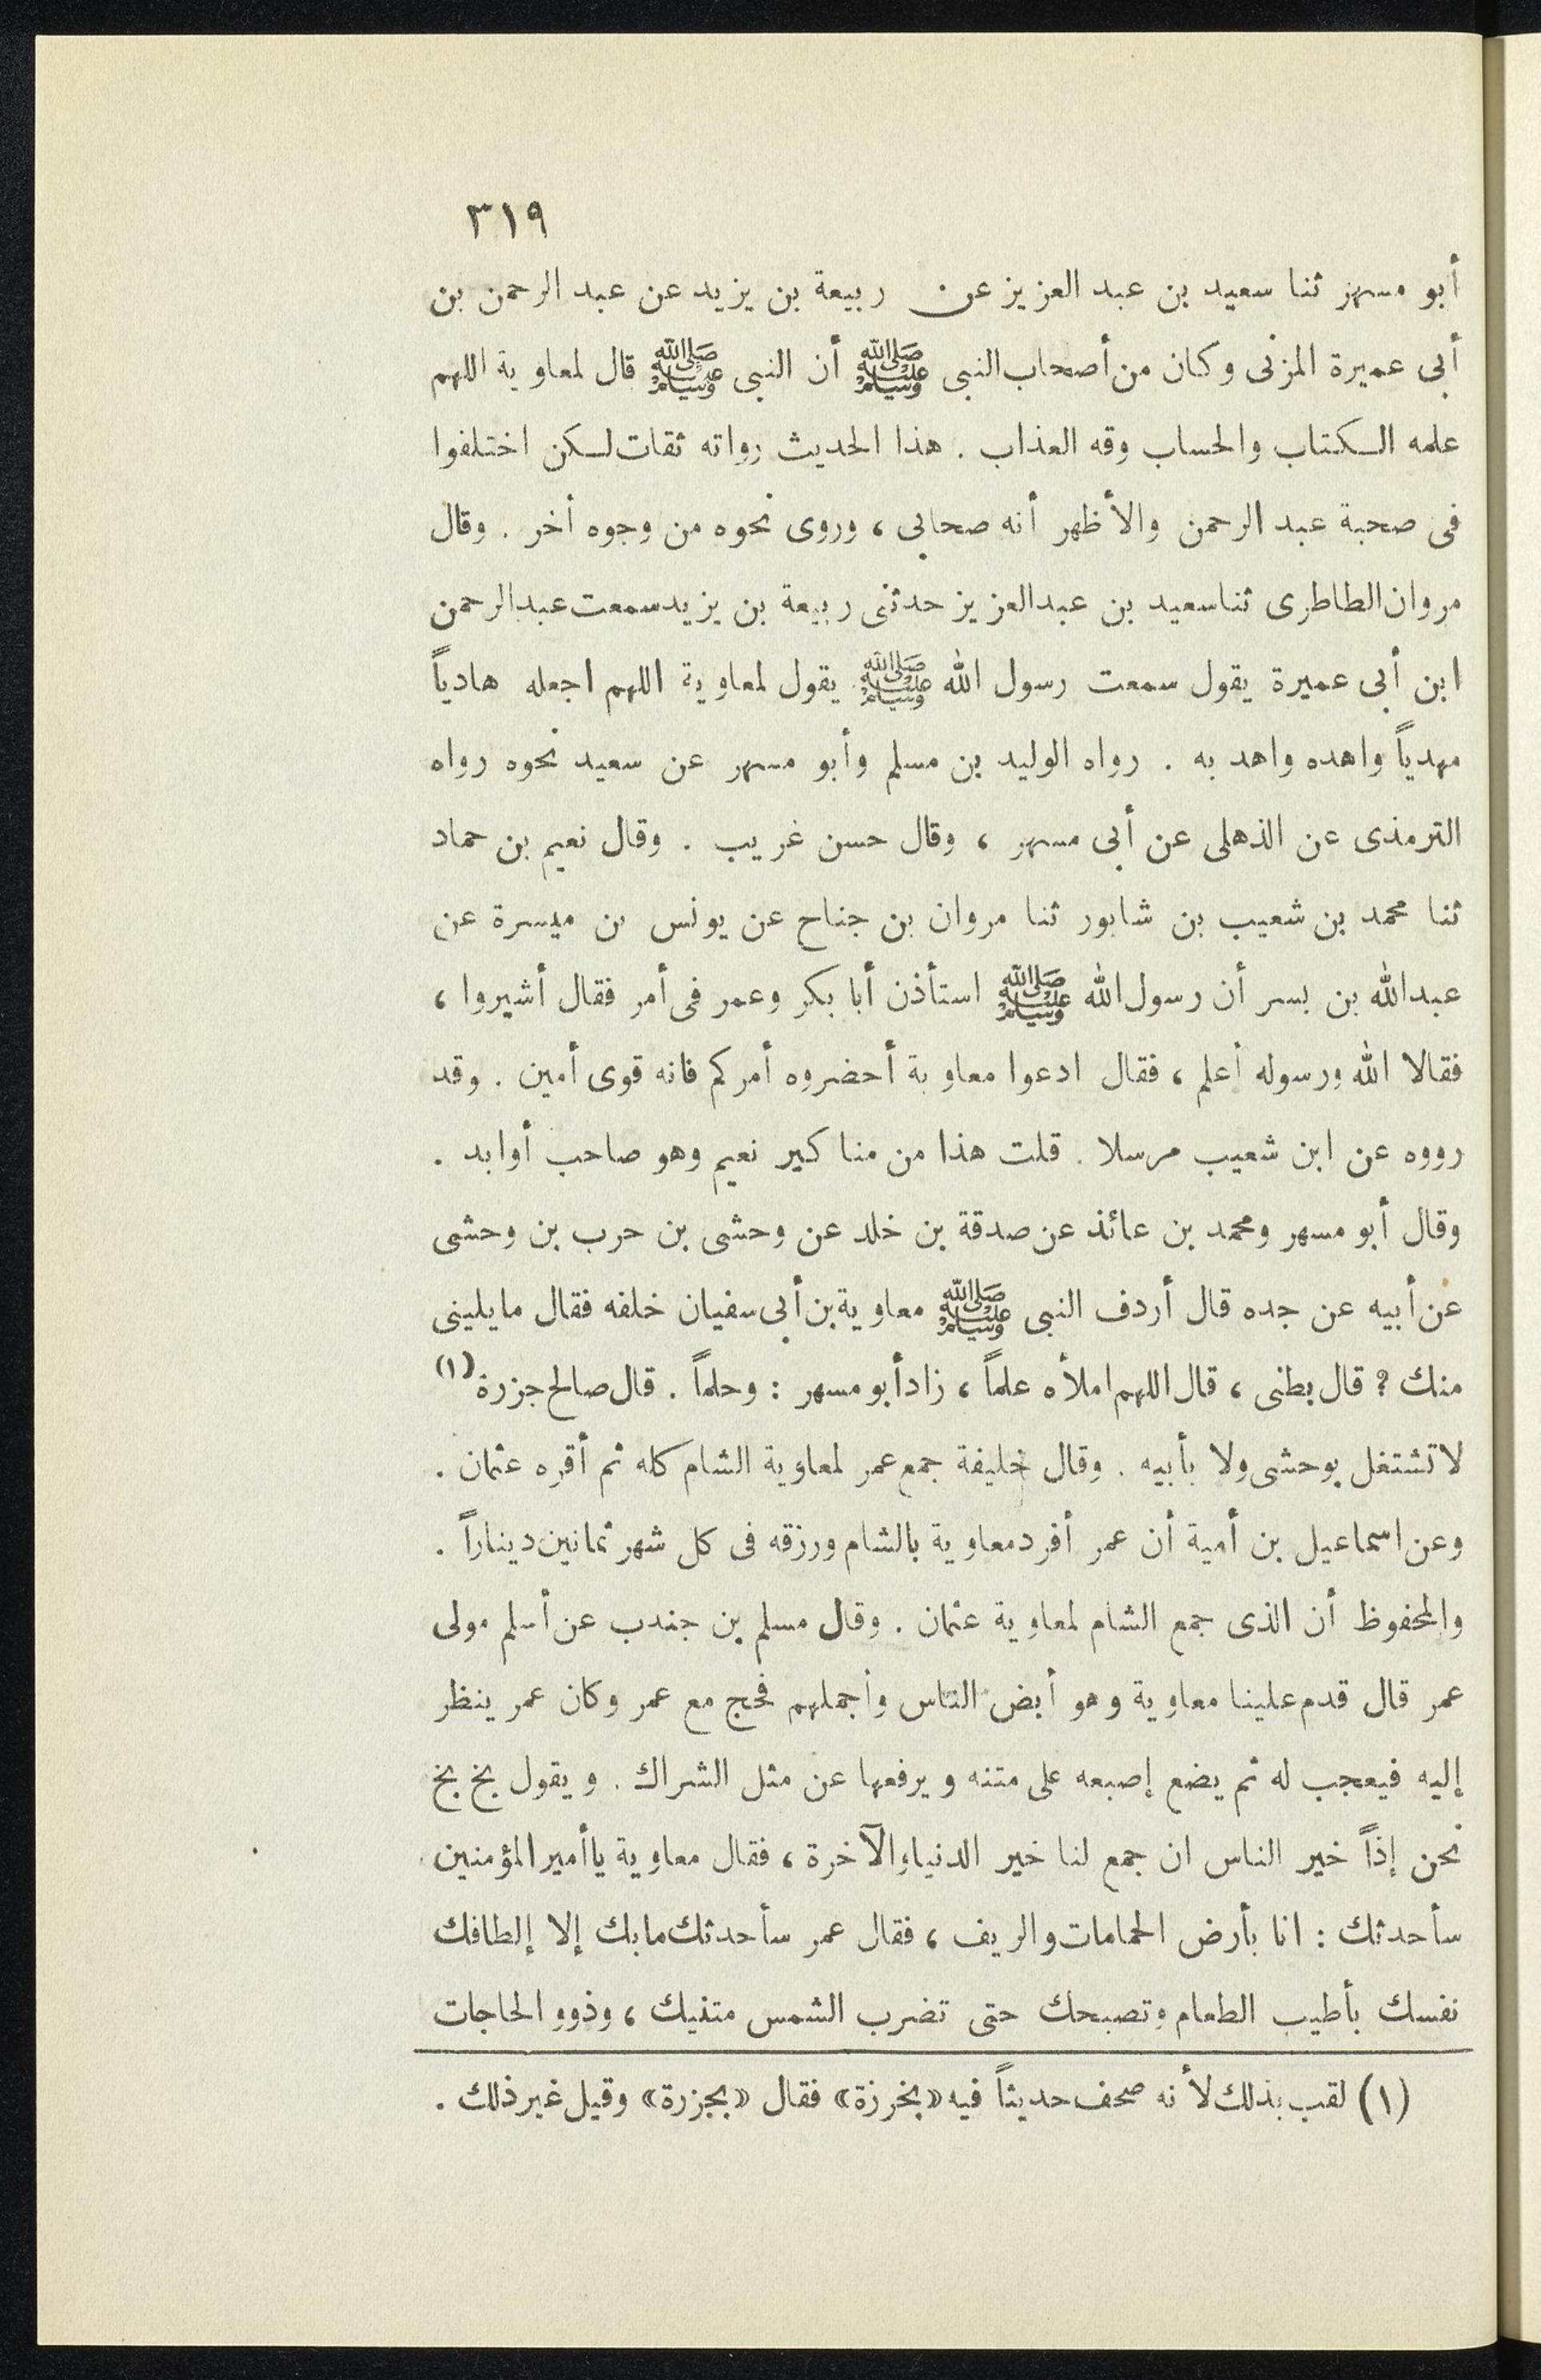 ٣١٩
أبو مسهر ثنا سعيد بن عبد العزيز عن ربيعة بن يزيد عن عبد الرحمن بن
أبى عميرة المزنى وكان من أصحاب النبى ﷺ أن النبى ﷺ قال لمعاوية اللهم
علمه الكتاب والحساب وقه العذاب . هذا الحديث رواته ثقات لكن اختلفوا
فى صحبة عبد الرحمن والأظهر أنه صحابي ، وروى نحوه من وجوه أخر . وقال
مروان الطاطرى ثنا سعيد بن عبد العزيز حدثنى ربيعة بن يزيد سمعت عبد الرحمن
ابن أبى عميرة يقول سمعت رسول الله ﷺ يقول لمعاوية اللهم اجعله هادياً
مهدياً واهده واهد به . رواه الوليد بن مسلم وأبو مسهر عن سعيد نحوه رواه
الترمذى عن الذهلى عن أبى مسهر ، وقال حسن غريب . وقال نعيم بن حماد
ثنا محمد بن شعيب بن شابور ثنا مروان بن جناح عن يونس بن ميسرة عن
عبد الله بن بسر أن رسول الله ﷺ استأذن أبا بكر وعمر فى أمر فقال أشيروا ،
فقالا الله ورسوله أعلم ، فقال ادعوا معاوية أحضروه أمركم فانه قوى أمين . وقد
رووه عن ابن شعيب مرسلا . قلت هذا من مناكير نعيم وهو صاحب أوابد .
وقال أبو مسهر ومحمد بن عائذ عن صدقة بن خلد عن وحشى بن حرب بن وحشى
عن أبيه عن جده قال أردف النبى ﷺ معاوية بن أبى سفيان خلفه فقال ما يلينى
منك ؟ قال بطنى ، قال اللهم املأه علماً ، زاد أبو مسهر : وحلماً . قال صالح جزرة (١)
لا تشتغل بوحشى ولا بأبيه . وقال خليفة جمع عمر لمعاوية الشام كله ثم أقره عثمان .
وعن اسماعيل بن أمية أن عمر أفرد معاوية بالشام ورزقه فى كل شهر ثمانين ديناراً .
والمحفوظ أن الذى جمع الشام لمعاوية عثمان . وقال مسلم بن جندب عن أسلم مولى
عمر قال قدم علينا معاوية وهو أبض الناس وأجملهم فحج مع عمر وكان عمر ينظر
إليه فيعجب له ثم يضع إصبعه على متنه ويرفعها عن مثل الشراك . ويقول بخ بخ
نحن إذاً خير الناس ان جمع لنا خير الدنيا والآخرة ، فقال معاوية يا أمير المؤمنين
سأحدثك : انا بأرض الحمامات والريف ، فقال عمر سأحدثك ما بك إلا إلطافك
نفسك بأطيب الطعام وتصبحك حتى تضرب الشمس متنيك ، وذوو الحاجات
(١) لقب بذلك لأنه صحف حديثاً فيه «بخرزة» فقال «بجزرة» وقيل غير ذلك .